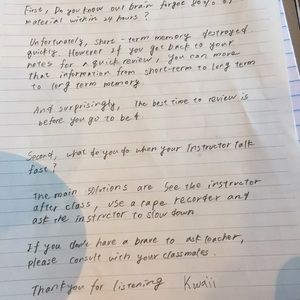 First, Do you know our brain forgot 80% of
material within 24 hours?
Unfortunately, short-term memory destroyed
quickly. However If you get back to your
notes for a quick review, you can move
that information from short-term to long term
to long term memory
And surprisingly, The best time to review is
before you go to bed.
Second, what do you do when your Instructor talk
fast?
The main solutions are See the instructor
after class, use a tape recorder and
ask the instructor to slow down
If you don't have a brave to ask teacher,
please consult with your classmates.
Thank you for listening Kwaii